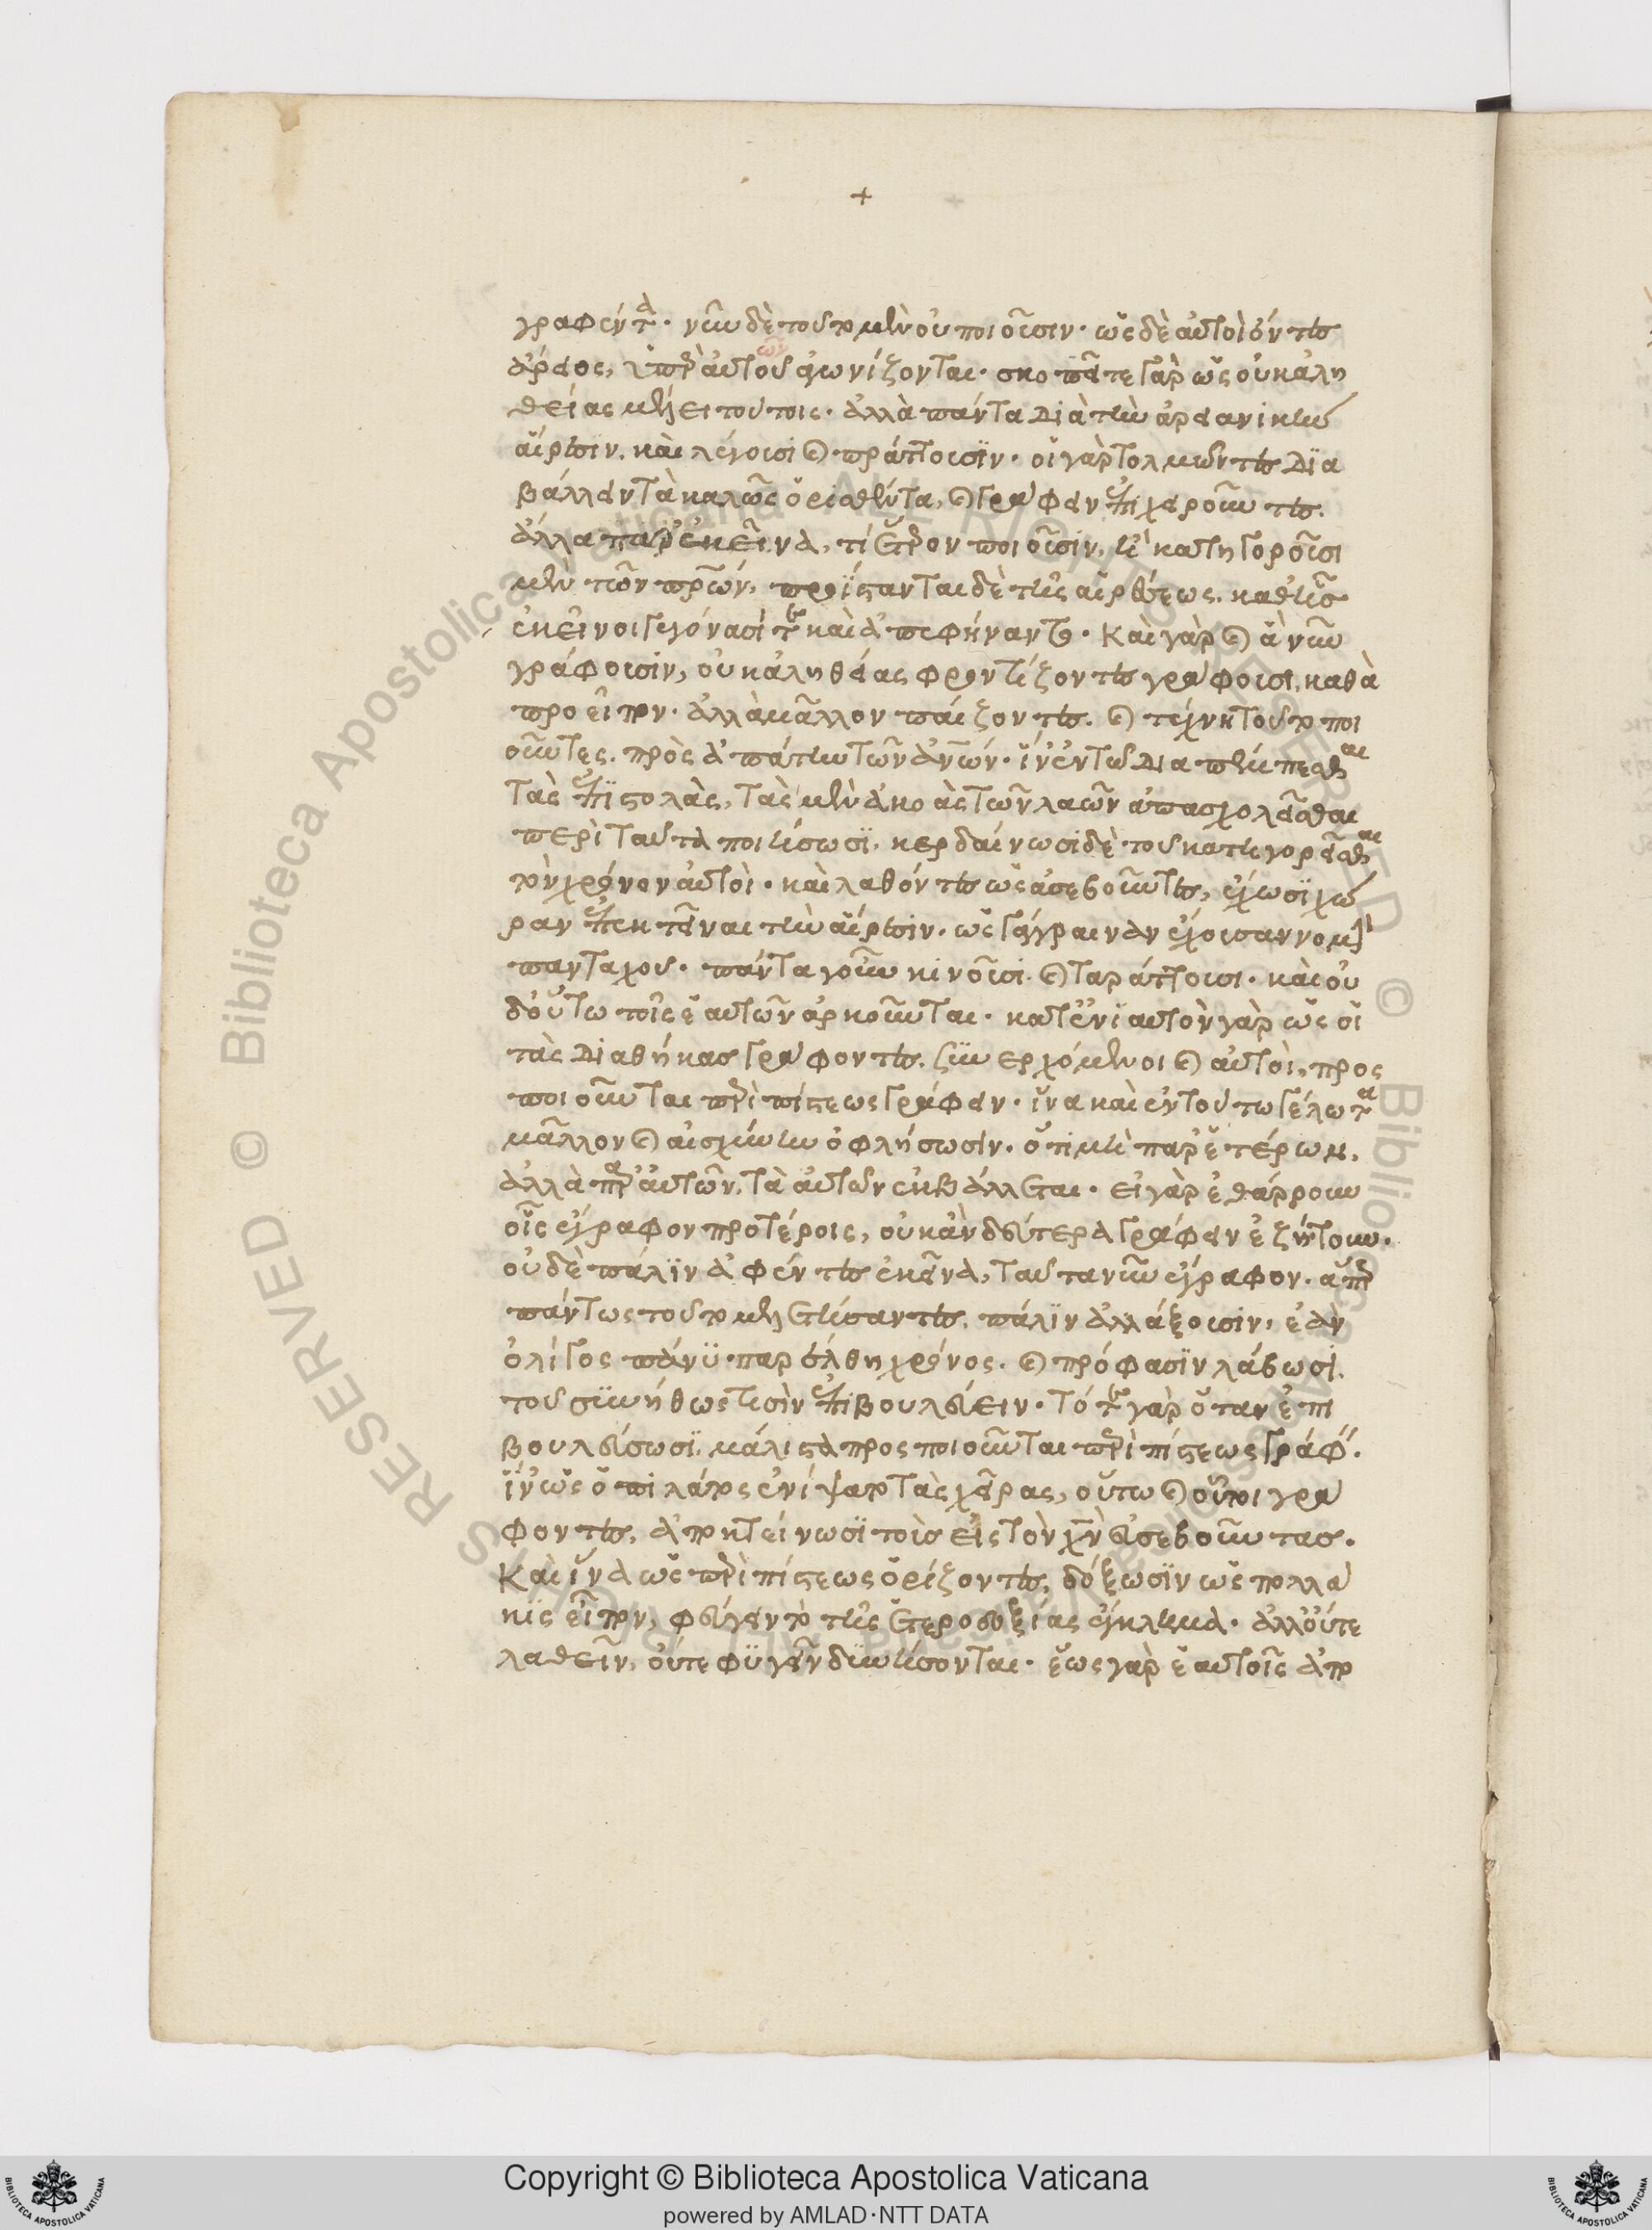 +
γραφέντα. νῦν δὲ τοῦτο μὲν οὐ ποιοῦσιν. ὡς δὲ αὐτοὶ ὄντες
ἄρειος, ὑπὲρ αὐτοῦ ἀγωνίζονται. σκοπεῖτε γὰρ ὡς οὐκ ἀλη
θείας μέλει τούτοις. ἀλλὰ πάντα διὰ τὴν ἀρειανικὴν
αἵρεσιν. καὶ λέγουσι καὶ πράττουσιν. οἱ γὰρ τολμῶντες δια
βάλλειν τὰ καλῶς ὁρισθέντα, καὶ γράφειν ἐπιχειροῦντες
ἄλλα παρ' ἐκεῖνα, τί ἕτερον ποιοῦσιν, ἢ κατηγοροῦσι
μὲν τῶν πρων, προΐστανται δὲ τῆς αἱρέσεως. καθ' ἧς
ἐκεῖνοι γεγόνασί τε καὶ ἀπεφήναντο. Καὶ γὰρ καὶ ἃ νῦν
γράφουσιν, οὐκ ἀληθείας φροντίζοντες γράφουσι, καθὰ
προεῖπον. ἀλλὰ μᾶλλον παίζοντες. καὶ τέχνη τοῦτο ποι
οῦντες. πρὸς ἀπάτην τῶν ἀνων. ἵν' ἐν τῶ διαπέμπεσθαι
τὰς ἐπιστολὰς, τὰς μὲν ἀκοὰς τῶν λαῶν ἀπασχολεῖσθαι
περὶ ταῦτα ποιήσωσϊ. κερδαίνωσι δὲ τοῦ κατηγορεῖσθαι
τὸν χρόνον αὐτοὶ. καὶ λαθόντες ὡς ἀσεβοῦντες, ἔχωσϊ χώ
ραν ἐπεκτεῖναι τὴν αἵρεσιν. ὡς γάγραιναν ἔχουσαν νομὴν
πανταχοῦ. πάντα γοῦν κινοῦσι καὶ ταράττουσι. καὶ οὐ
δ' οὕτω τοῖς ἑαυτῶν ἀρκοῦνται. κατ' ἐνϊαυτὸν γὰρ ὡς οἱ
τὰς διαθήκας γράφοντες, συνερχόμενοι καὶ αὐτοὶ, προς
ποιοῦνται περὶ πίστεως γράφειν. ἵνα καὶ ἐν τούτω γέλωτα
μᾶλλον καὶ αἰσχύνην ὀφλήσωσιν. ὅτι μὴ παρ' ἑτέρων,
ἀλλὰ παρ' αὐτῶν, τὰ αὐτῶν ἐκβάλλεται. εἰ γὰρ ἐθάρρουν
οἷς ἔγραφον προτέροις, οὐκ ἂν δεύτερα γράφειν ἐζήτουν.
οὐδὲ πάλϊν ἀφέντες ἐκεῖνα, ταῦτα νῦν ἔγραφον. ἅπερ
πάντως τοῦτο πάλϊν ἀλλάξουσιν, ἐὰν
ὀλίγος πάνϋ παρέλθη χρόνος. καὶ πρόφασϊν λάβωσϊ.
τοῦ συνήθως τισὶν ἐπιβουλεύειν. Τότε γὰρ ὅταν ἐπι
βουλεύσωσϊ, μάλιστα προςποιοῦνται περὶ πίστεως γράφ.
ἵν' ὡς ὁ πιλάτος ἐνίψατο τὰς χεῖρας, οὕτω καὶ οὗτοι γρά
φοντες, ἀποκτείνωσϊ τοὺς εἰς τὸν χν εὐσεβοῦντας.
Καὶ ἵνα ὡς περὶ πίστεως ὁρίζοντες, δόξωσϊν ὡς πολλά
κϊς εἶπον, φεύγειν τὸ τῆς ἑτεροδοξίας ἔγκλημα. ἀλλ' οὔτε
λαθεῖν, οὔτε φϋγεῖν δϋνήσονται. ἕως γὰρ ἑαυτοῖς ἀπο
Copyright © Biblioteca Apostolica Vaticana
powered by AMLAD·NTT DATA